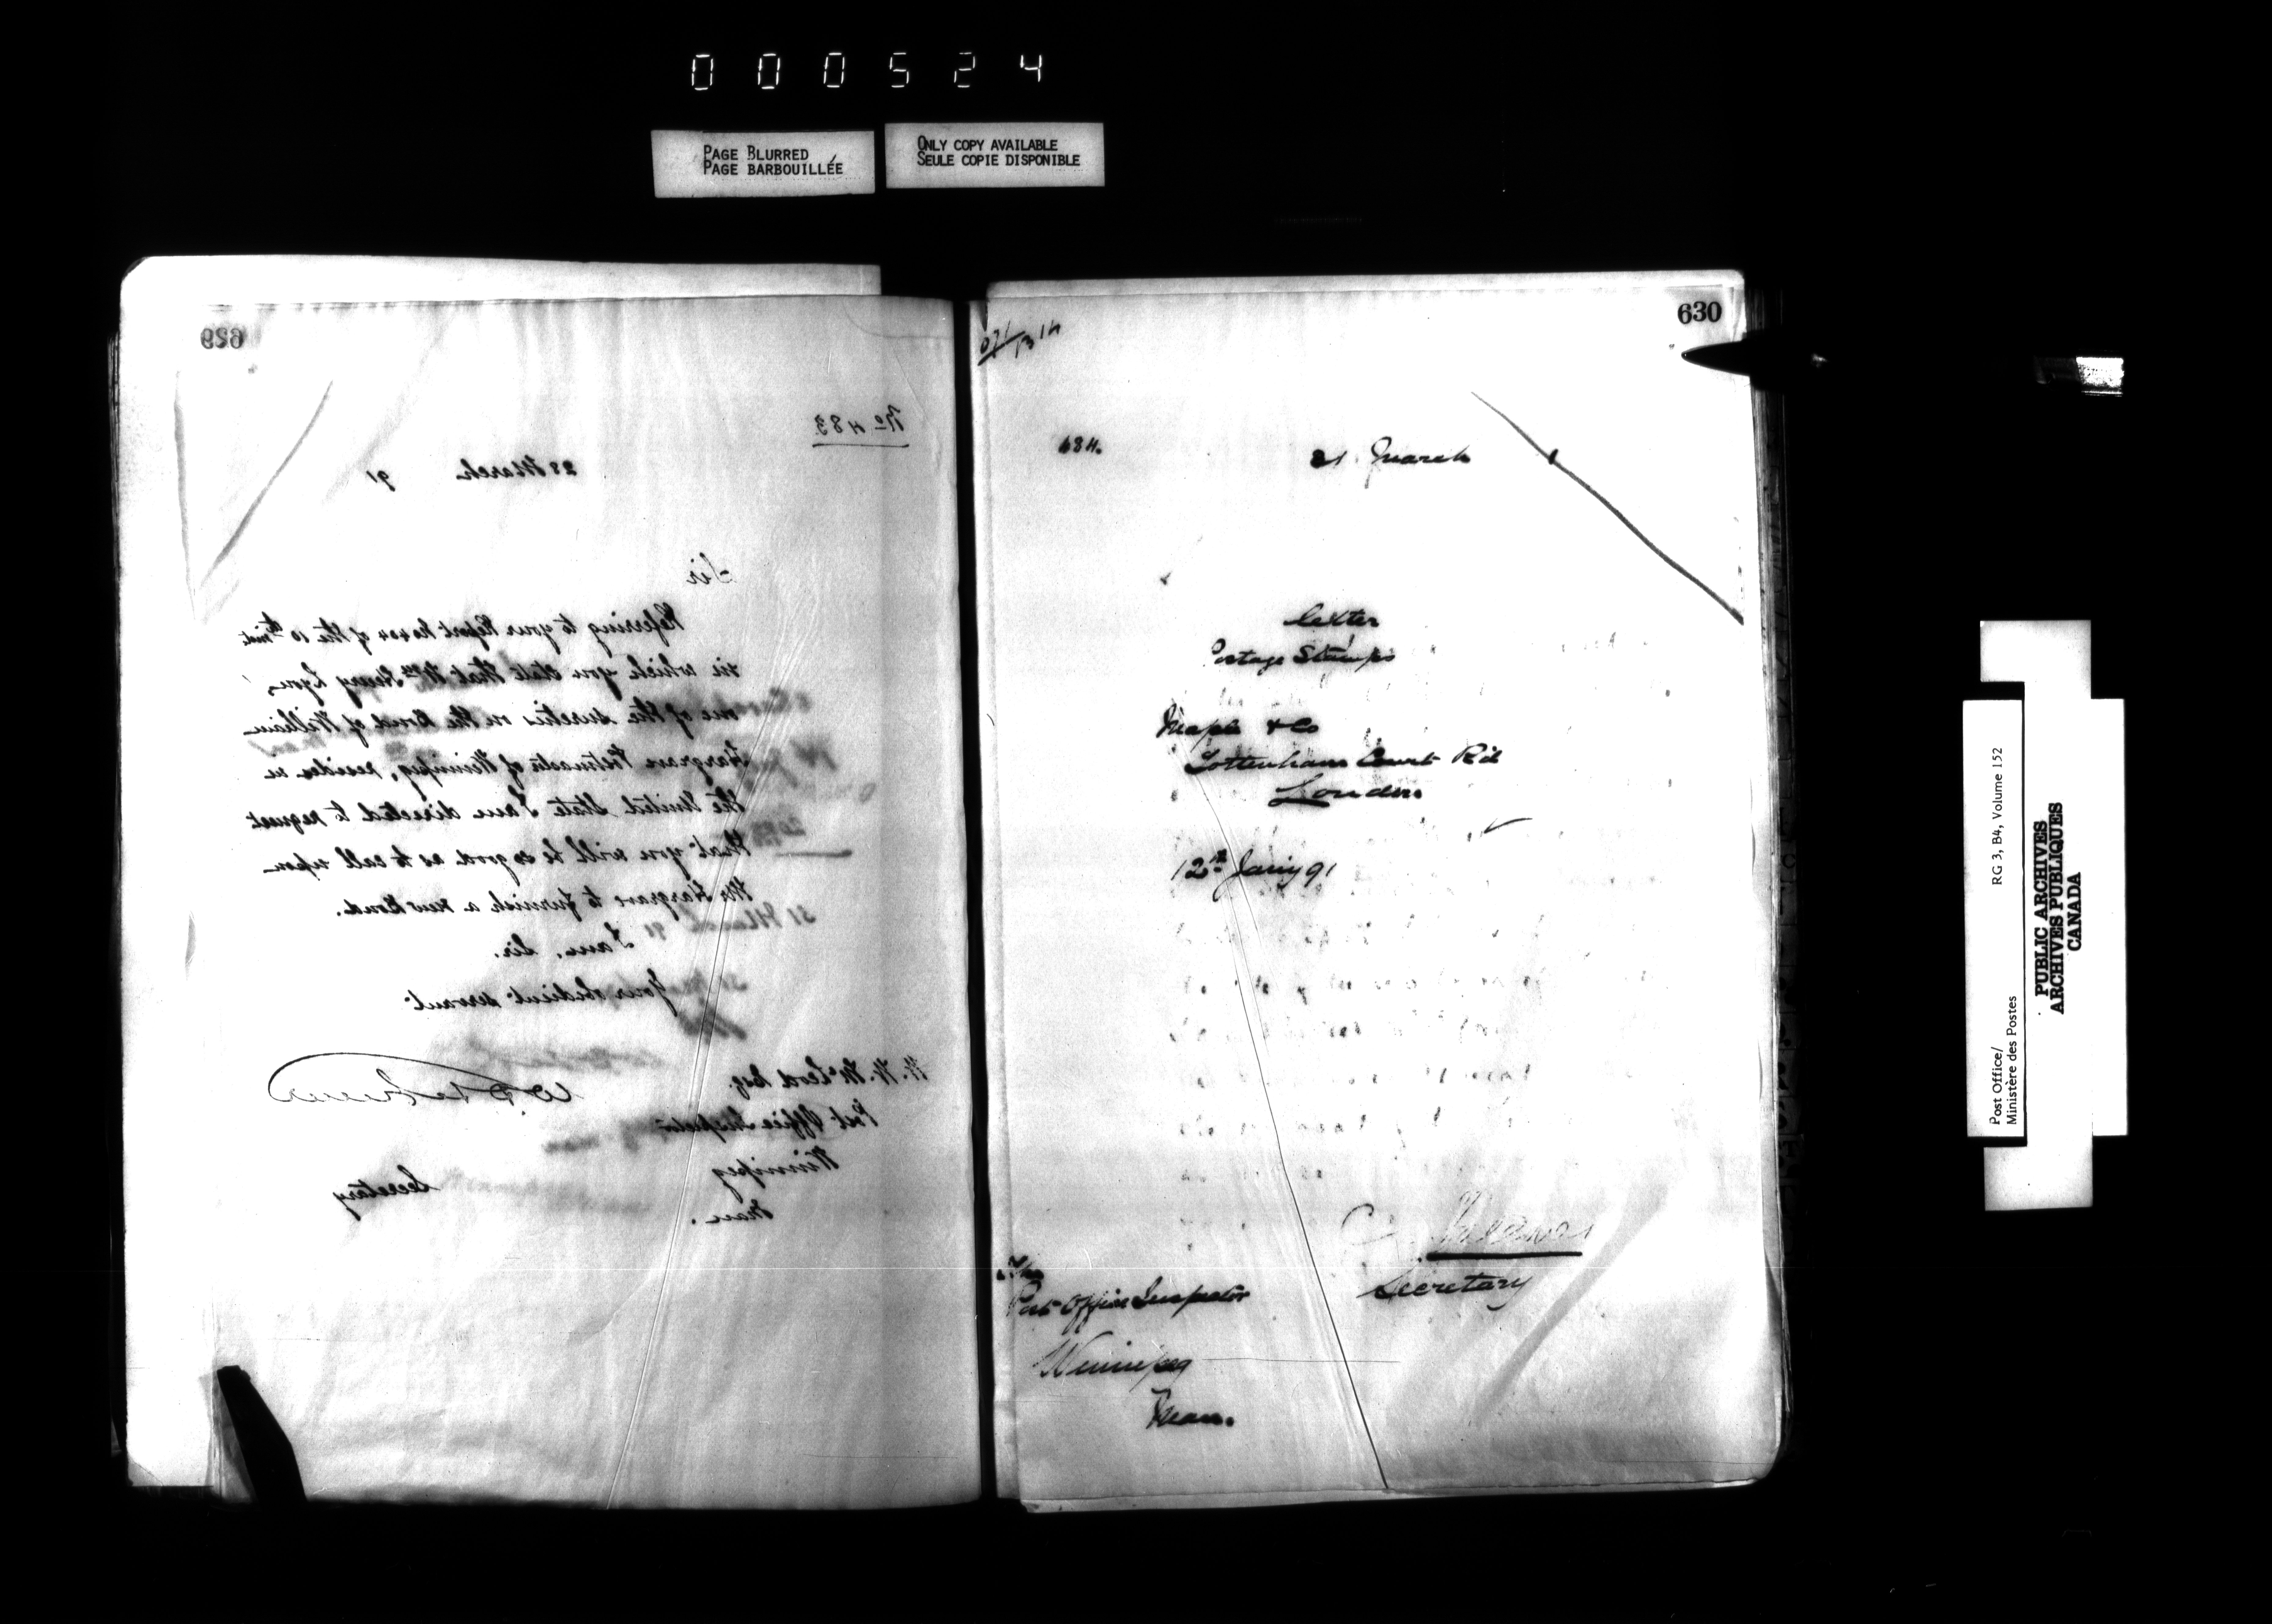 000524
PAGE BLURRED
PAGE BARBOUILLÉE
ONLY COPY AVAILABLE
SEULE COPIE DISPONIBLE
629
No 483
28 March 91
Sir
Referring to your Report No 404 of the 10th inst
in which you state that Wm Henry Lyon,
one of the sureties on the Bond of William
Hargrave Postmaster of Winnipeg, resides in
the United State I am directed to request
that you will be so good as to call upon
Mr Hargrave to furnish a new Bond.
I am, Sir.
Your obedient servant
W. W. McLeod Esq.
Post Office Inspector
Winnipeg
Man.
Secretary
630
634.
21 March 1
Letter
Postage Stamps
Maple & Co
Tottenham Court Rd
London
12th Jany 91
Secretary
The
Post Office Inspector
Winnipeg
Man.
Post Office/
Ministère des Postes
RG 3, B4, Volume 152
PUBLIC ARCHIVES
ARCHIVES PUBLIQUES
CANADA